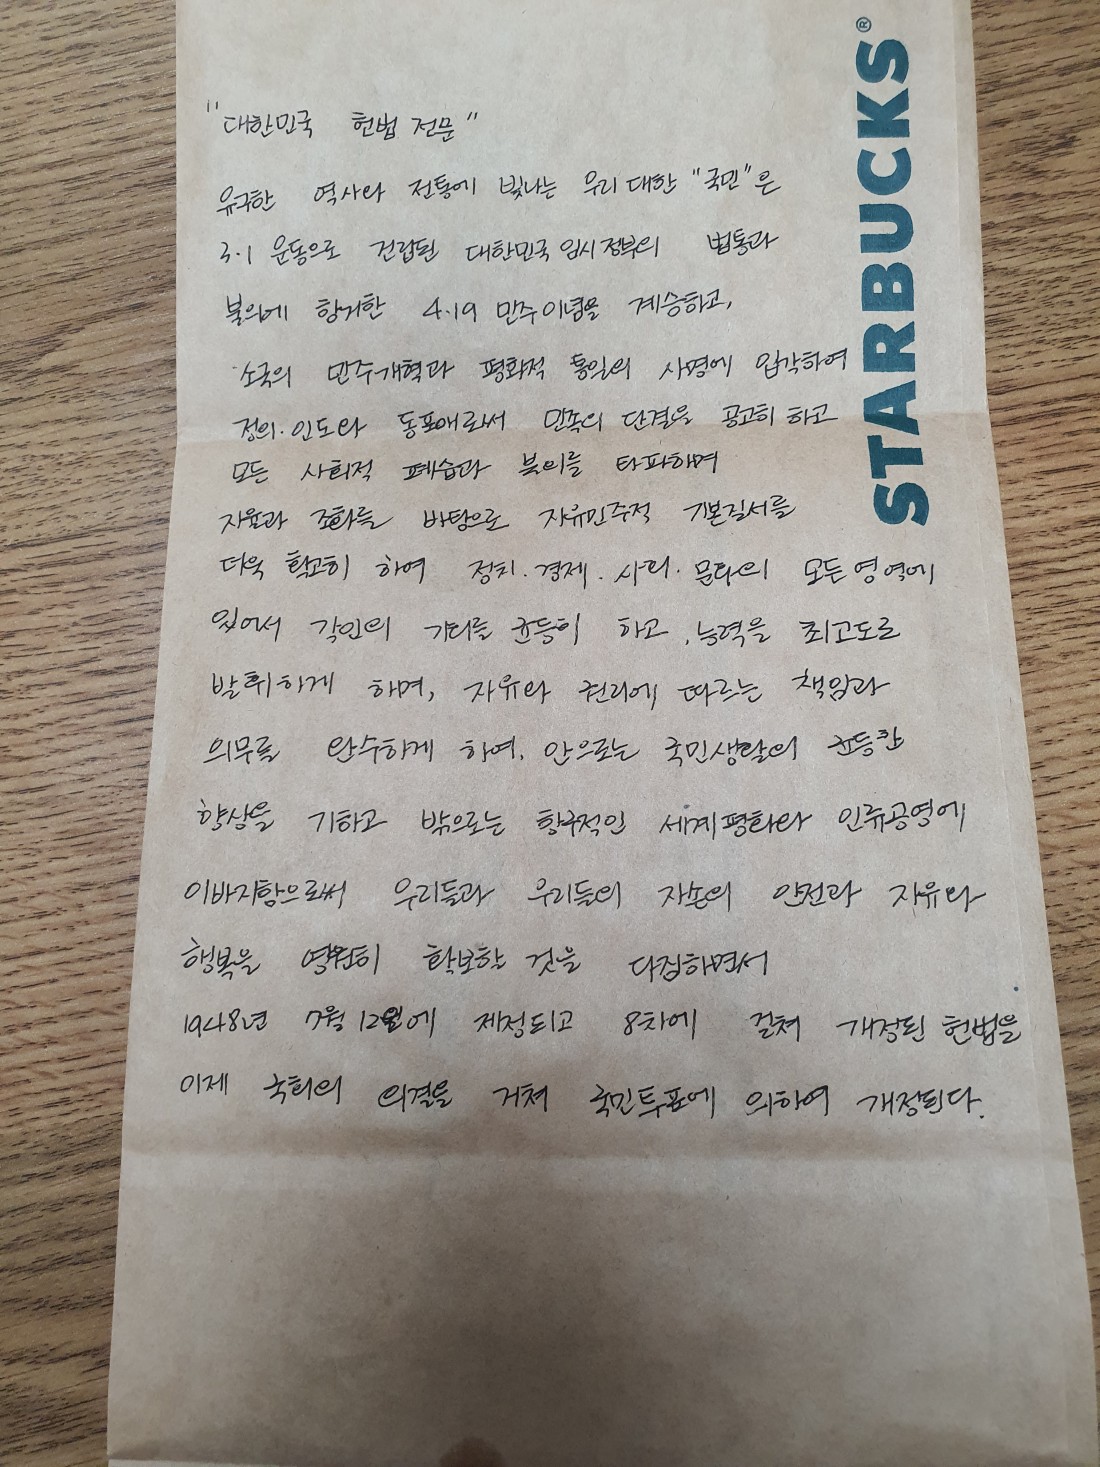 "대한민국 헌법 전문"
유구한 역사와 전통에 빛나는 우리 대한 "국민"은
3·1 운동으로 건립된 대한민국 임시정부의 법통과
불의에 항거한 4·19 민주이념을 계승하고,
조국의 민주개혁과 평화적 통일의 사명에 입각하여
정의·인도와 동포애로써 민족의 단결을 공고히 하고
모든 사회적 폐습과 불의를 타파하며
자율과 조화를 바탕으로 자유민주적 기본질서를
더욱 확고히 하여 정치·경제·사회·문화의 모든 영역에
있어서 각인의 기회를 균등히 하고, 능력을 최고도로
발휘하게 하며, 자유와 권리에 따르는 책임과
의무를 완수하게 하여, 안으로는 국민생활의 균등한
향상을 기하고 밖으로는 항구적인 세계평화와 인류공영에
이바지함으로써 우리들과 우리들의 자손의 안전과 자유와
행복을 영원히 확보할 것을 다짐하면서
1948년 7월 12일에 제정되고 8차에 걸쳐 개정된 헌법을
이제 국회의 의결을 거쳐 국민투표에 의하여 개정된다.
STARBUCKS®